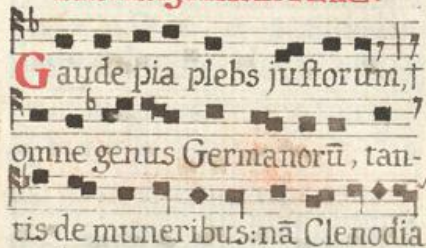 Gaude pia plebs juſtorum,†
omne genus Germanorū, tan-
tis de muneribus: nā Clenodia